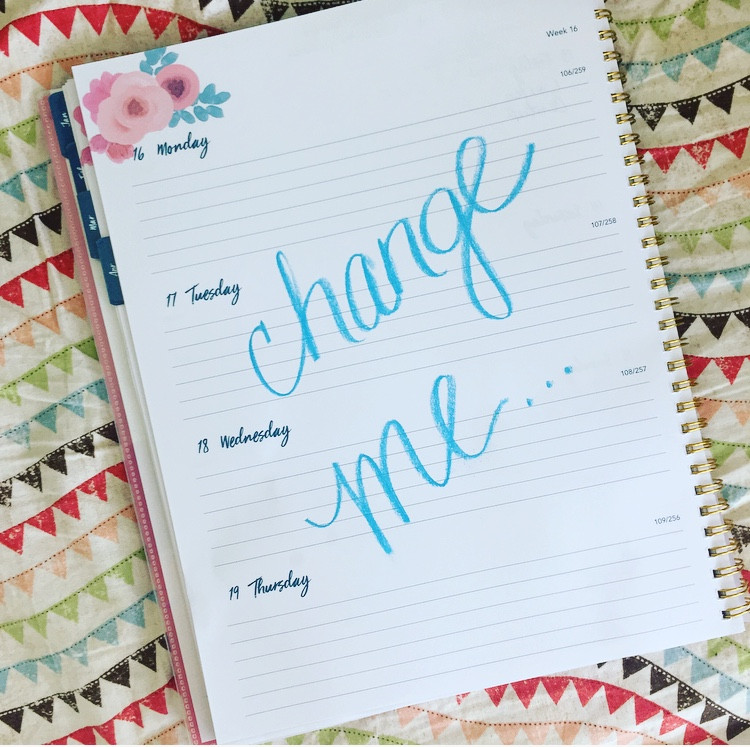 Week 16
106/259
16 Monday
change
107/258
17 Tuesday
me...
108/257
18 Wednesday
109/256
19 Thursday
Jan
Mar
Apr